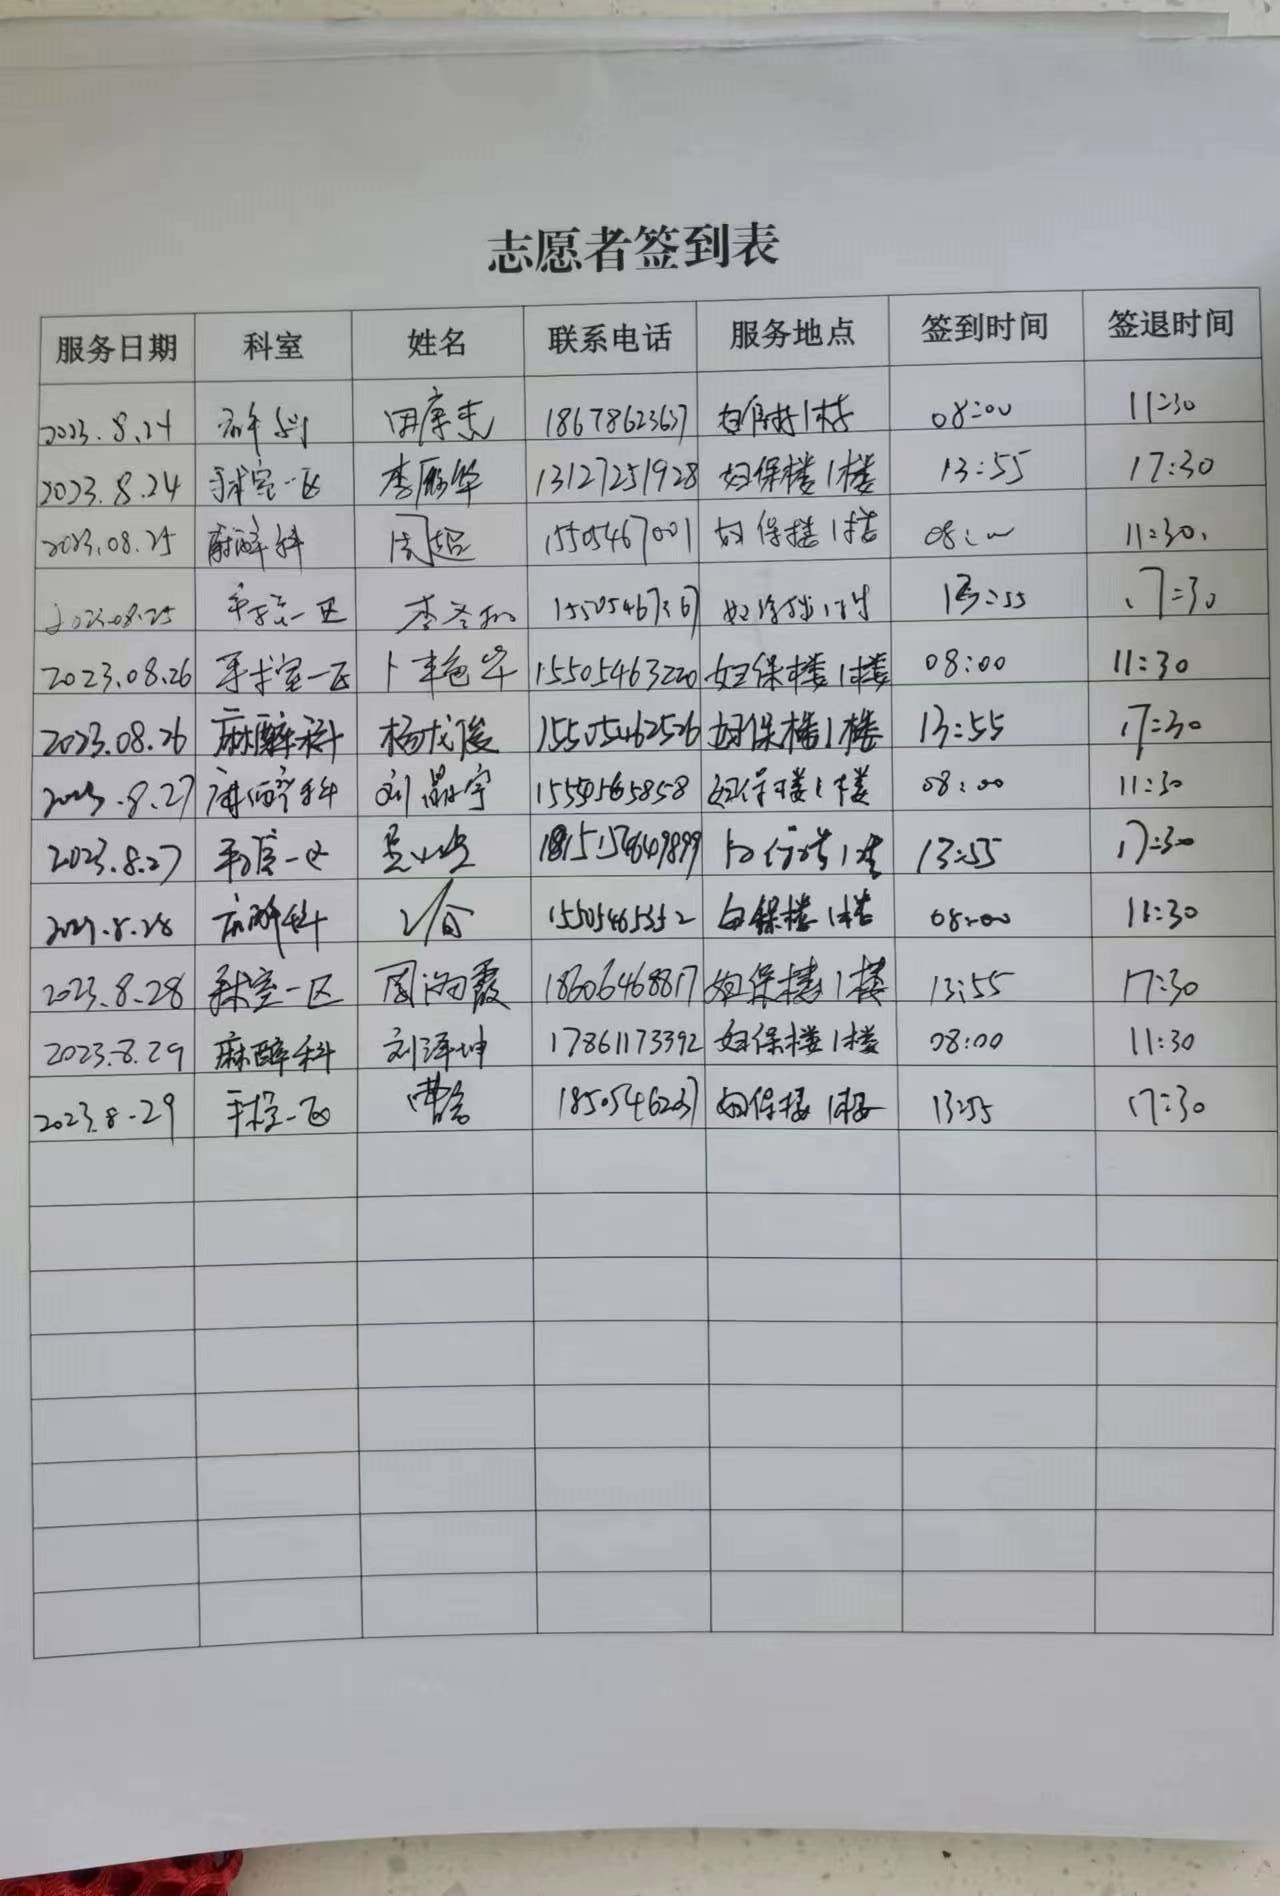 志愿者签到表
服务日期 科室 姓名 联系电话 服务地点 签到时间 签退时间
2023.8.24 田康杰 18678623637 1楼 08:00 11:30
2023.8.24 手术室一区 李 华 13127251928 妇保楼1楼 13:55 17:30
2023.08.25 麻醉科 周超 15505467001 妇保楼1楼 08:00 11:30
2023.08.25 手术室一区 李冬 13:55 17:30
2023.08.26 手术室一区 卜丰色华 15505463220 妇保楼1楼 08:00 11:30
2023.08.26 麻醉科 杨成俊 15505462526 妇保楼1楼 13:55 17:30
2023.8.27 麻醉科 刘晶宇 妇保楼1楼 08:00 11:30
2023.8.27 手术室一区 13:55 17:30
2023.8.28 麻醉科 妇保楼1楼 08:00 11:30
2023.8.28 手术室一区 周海霞 18606468817 妇保楼1楼 13:55 17:30
2023.8.29 麻醉科 刘泽坤 17861173392 妇保楼1楼 08:00 11:30
2023.8.29 手术室一区 曹 妇保楼1楼 13:55 17:30